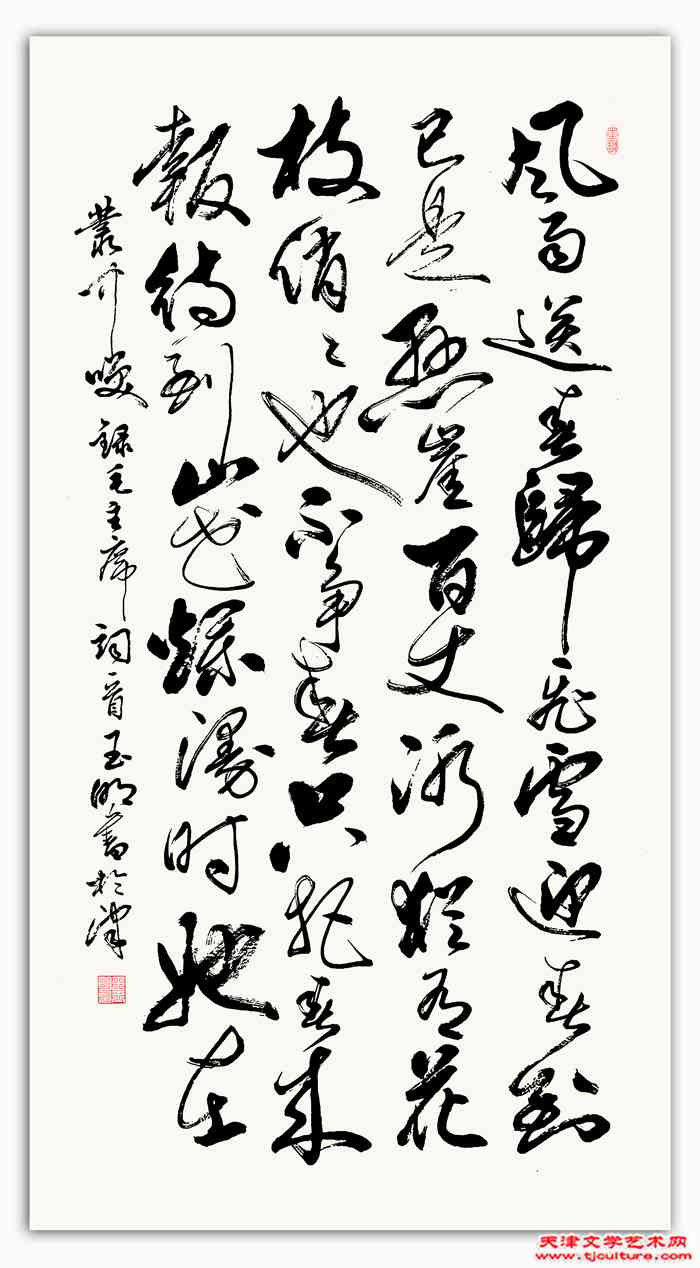 风雨送春歸飛雪迎春到
已是懸崖百丈冰猶有花
枝俏〻也不争春只把春来
報待到山花爛漫时她在
叢中咲 録毛主席詞一首玉明書於津
天津文学艺术网
www.tjculture.com